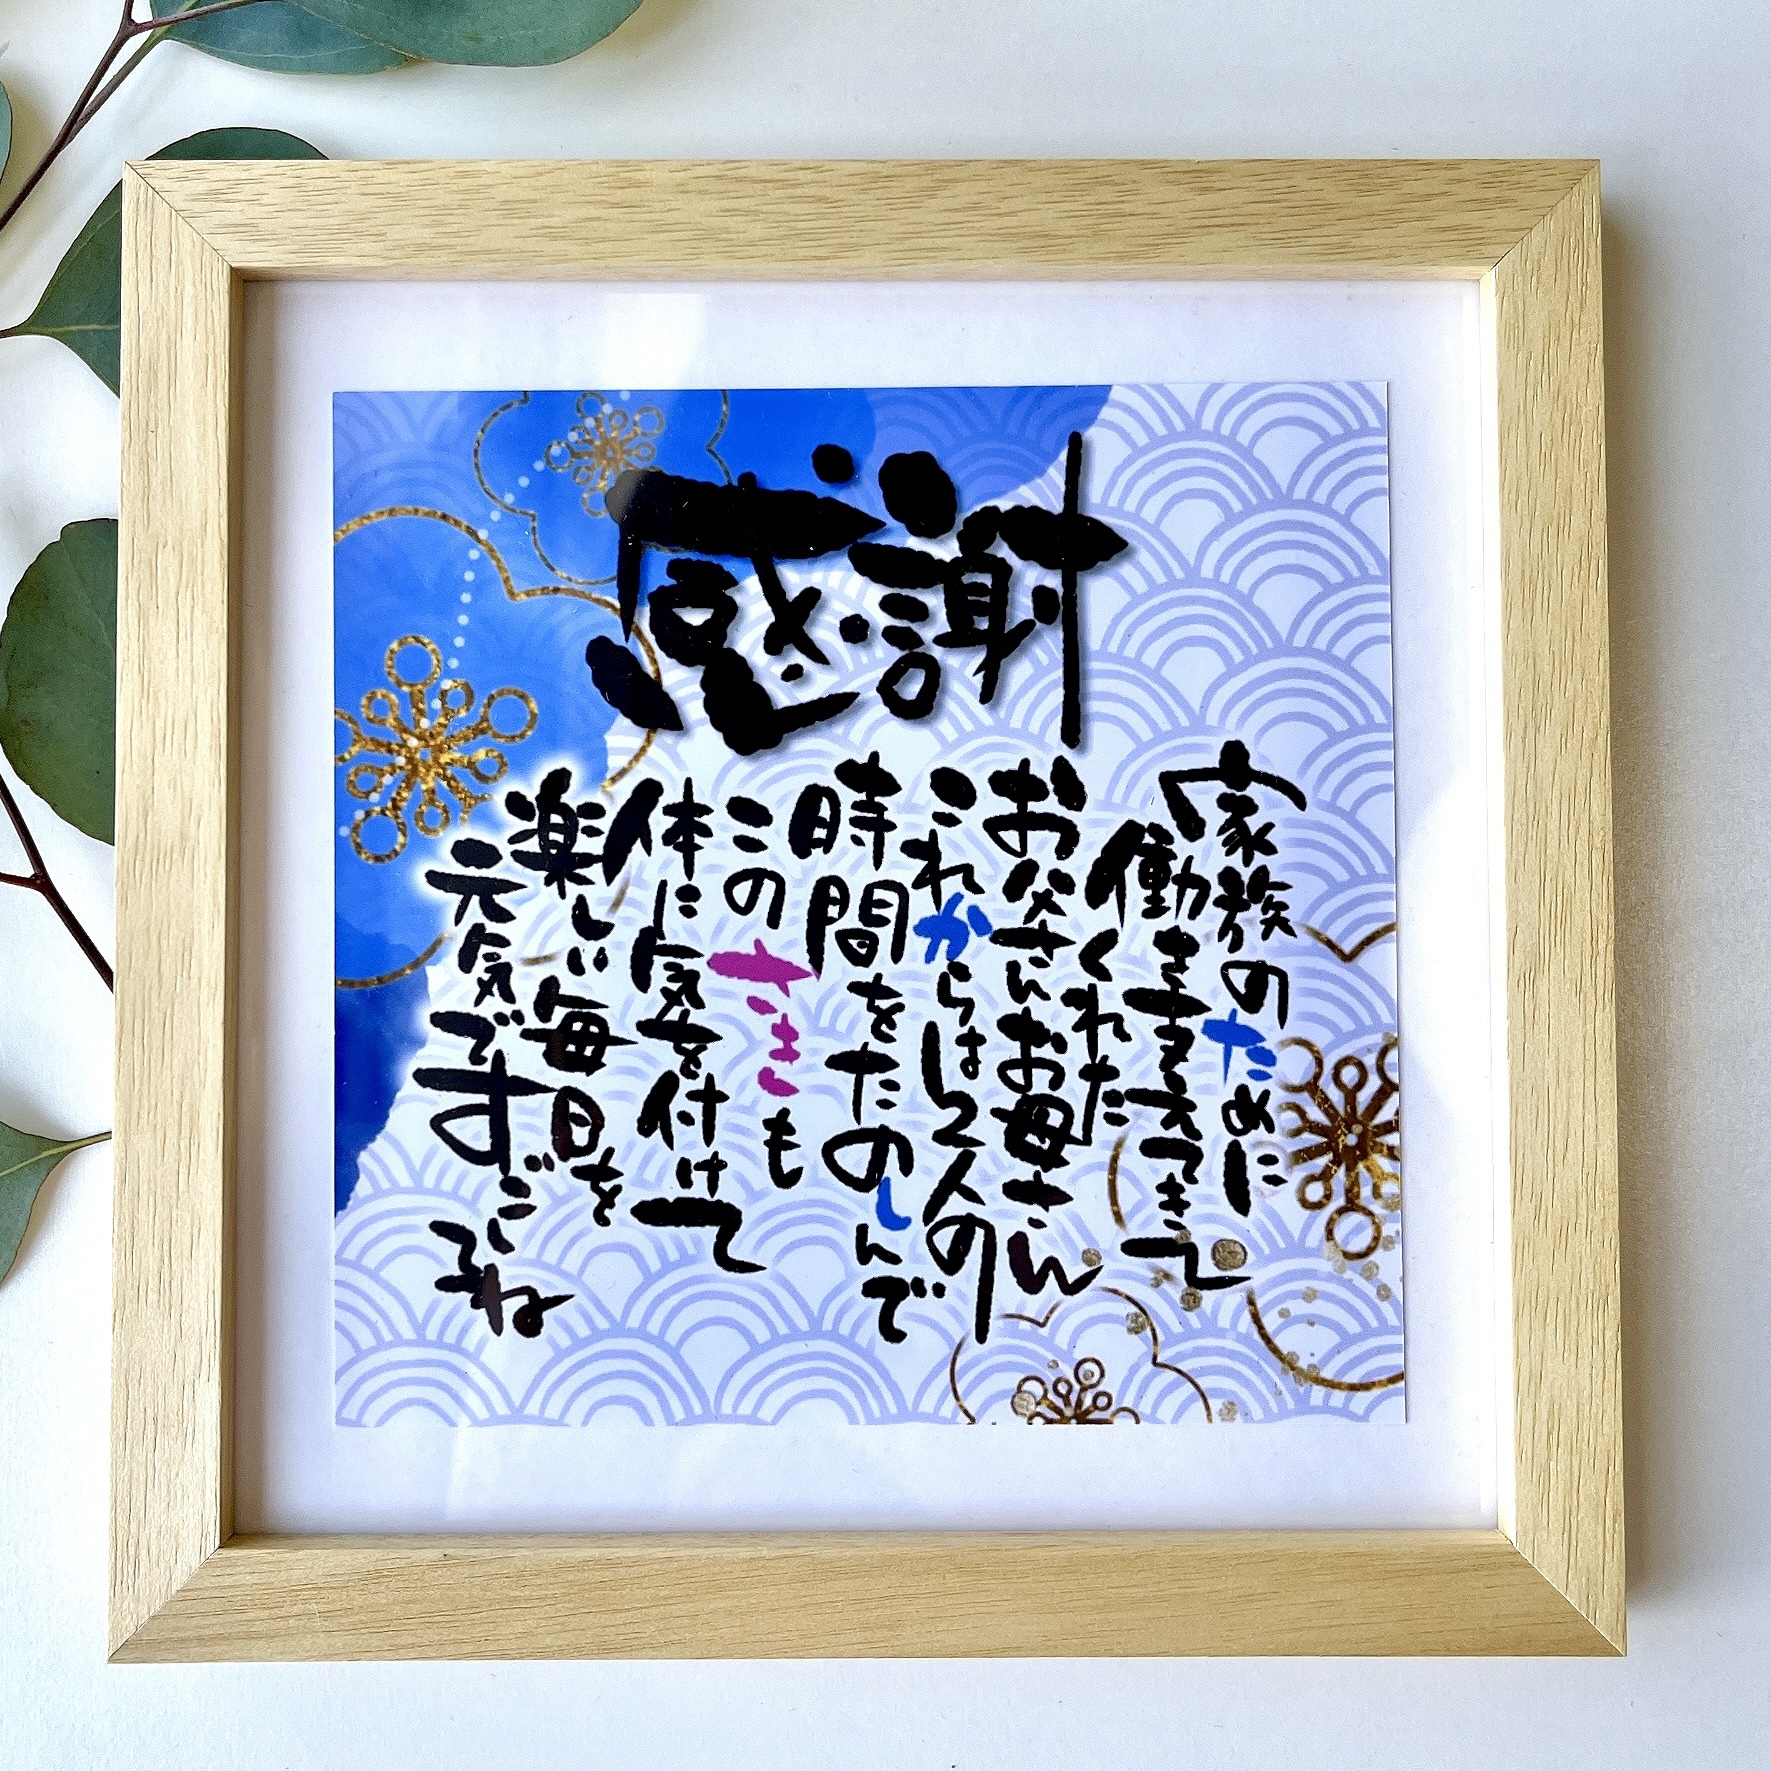 感謝
家族のために
働き支えてきて
くれた
お父さんお母さん
これからは2人の
時間をたのしんで
このさきも
体に気を付けて
楽しい毎日を
元気ですごしてね